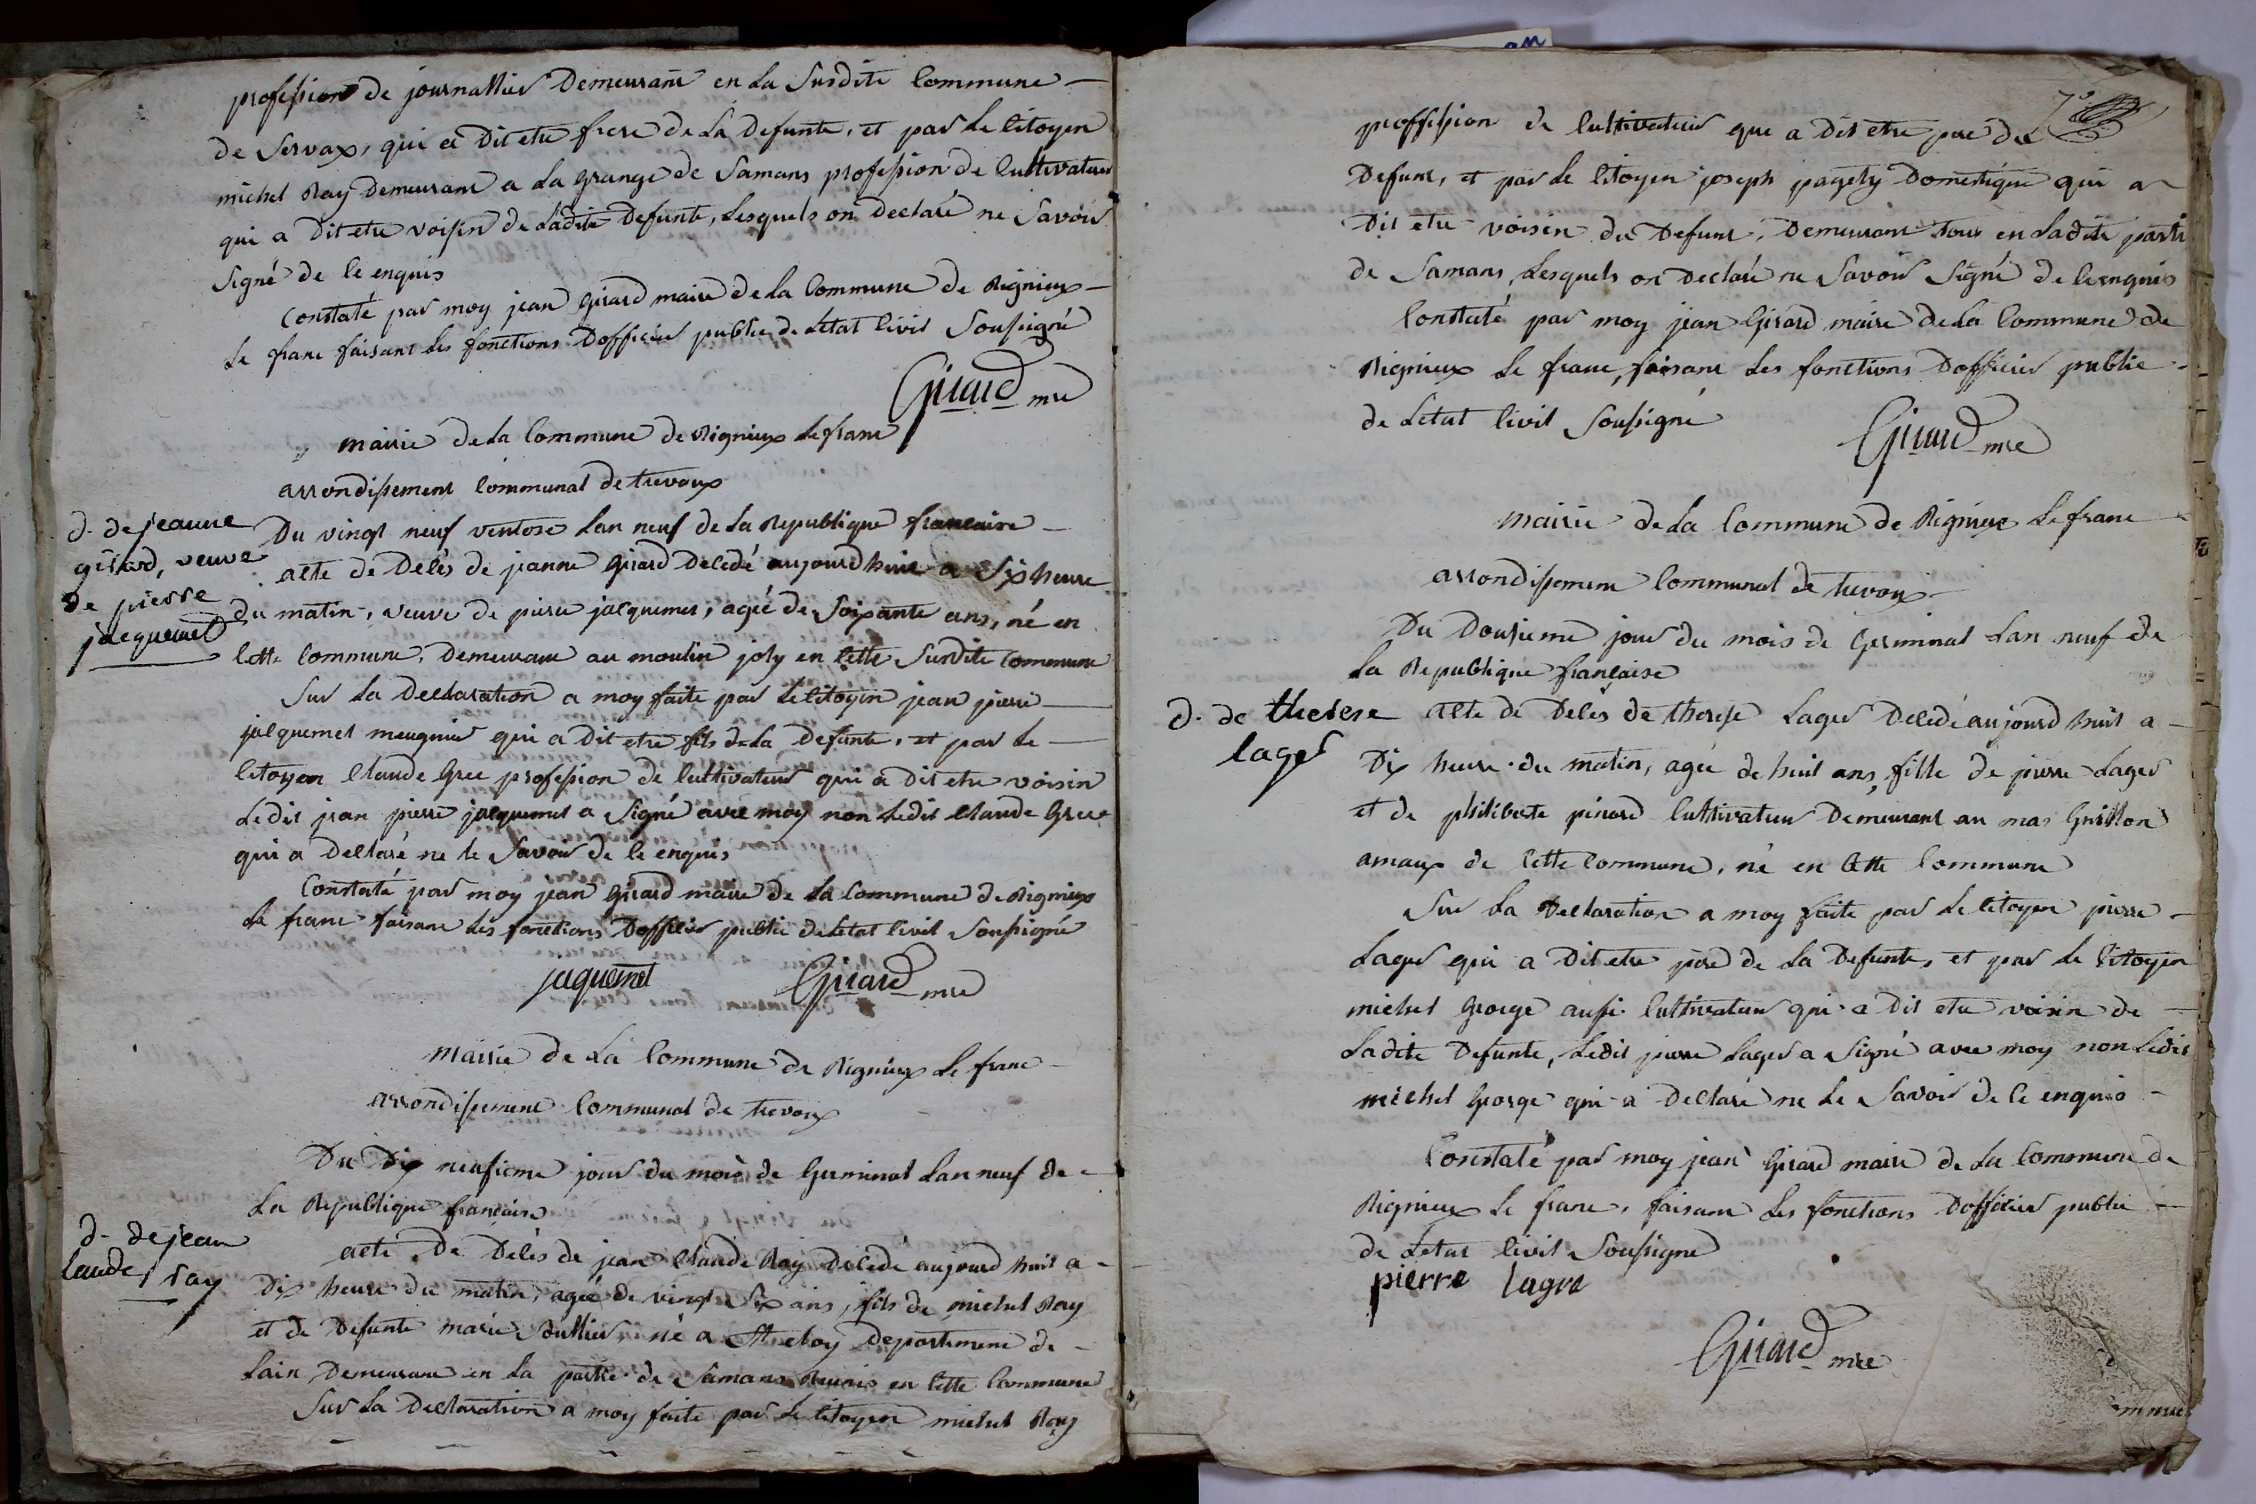 profession de journallier Demeurant en la Susdite Commune
de Servax, qui a Dit etre frere de La Defunte, et par Le Citoyen
michel Ray Demeurant a La grange de Samans profession de Cultivateur
qui a Dit etre voisin de Ladite Defunte, Lesquels on Declaré ne Savoir
Signé de Ce enquis
Constaté par moy jean Girard maire de La Commune de Rignieux
Le franc faisant Les fonctions Dofficier public de Letat Civil Soussigné
Girard mre
mairie de La Commune de Rignieux Lefranc
arrondissement Communal de trevoux
d. de jeanne
girard, veuve
de pierre
jacquemet
Du vingt neuf ventose Lan neuf de La Republique francaise
acte de Décés de jeanne Girard Decedé aujourdhuit a Six heure
du matin, veuve de pierre jacquemet, agée de Soixante ans, né en
Cette Commune, Demeurant au moulin joly en Cette Susdite Commune
Sur La Declaration a moy faite par Le Citoyen jean pierre
jacquemet meugnier qui a Dit etre fils de La Defunte, et par Le
Citoyen Claude Gree profession de Cultivateur qui a Dit etre voisin
Ledit jean pierre jacquemet a Signé avec moy non Ledit Claude Gree
qui a Declaré ne le Savoir de Ce enquis
Constaté par moy jean Girard maire de La Commune de Rignieux
Le franc faisant Les fonctions Dofficier public de Letat Civil Soussigné
jaquemet Girard mre
mairie de La Commune de Rignieux Le franc
arrondissement Communal de trevoux
Du Dix neufieme jour du mois de Germinal Lan neuf de
La Republique francaise
d. de jean
Claude, ray
acte De Décés de jean Claude Ray Decedé aujourdhuit a
Dix heure du matin, agée de vingt Six ans, fils de michel Ray
et de Defunte marie né a St eloy Departement de
Lain Demeurant en La partie de Samans Reunis en Cette Commune
Sur La Declaration a moy faite par Le Citoyen michel Ray
proffession de Cultivateur que a Dit etre pere du
Defunt, et par Le Citoyen joseph pagely Domestique qui a
Dit etre voisin du Defunt, Demeurant tous en Ladite partie
de Samans, Lesquels on Declaré ne Savoir Signé de Ce enquis
Constaté par moy jean Girard maire de La Commune de
Rignieux Le franc, faisant Les fonctions Dofficier public
de Letat Civil Soussigné
Girard mre
mairie de La Commune de Rignieux Le franc
arrondissement Communal de trevoux
Du Dousieme jour du mois de Germinal Lan neuf de
La Republique française
d. de therese
lager
acte de Décés de therese Lager Decedé aujourdhuit a
Dix heure du matin, agée de huit ans, fille de pierre Lager
et de philiberte pinard Cultivateur Demeurant au mas Guillon
amaux de Cette Commune, né en Cette Commune
Sur La Declaration a moy faite par Le Citoyen pierre
Lager qui a Dit etre pere de La Defunte, et par Le Citoyen
michel George aussi Cultivateur qui a Dit etre voisin de
Ladite Defunte, Ledit pierre Lager a Signé avec moy non Ledit
michel George qui a Declaré ne Le Savoir de Ce enquis
Constaté par moy jean Girard maire de La Commune de
Rignieux Le franc, faisant Les fonctions Dofficier public
de Letat Civil Soussigné
pierre lagre
Girard mre